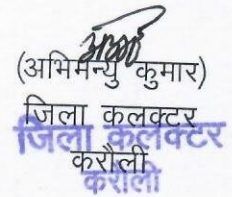 (अभिमन्यु कुमार)
जिला कलक्टर
जिला कलेक्टर
करौली
करौली